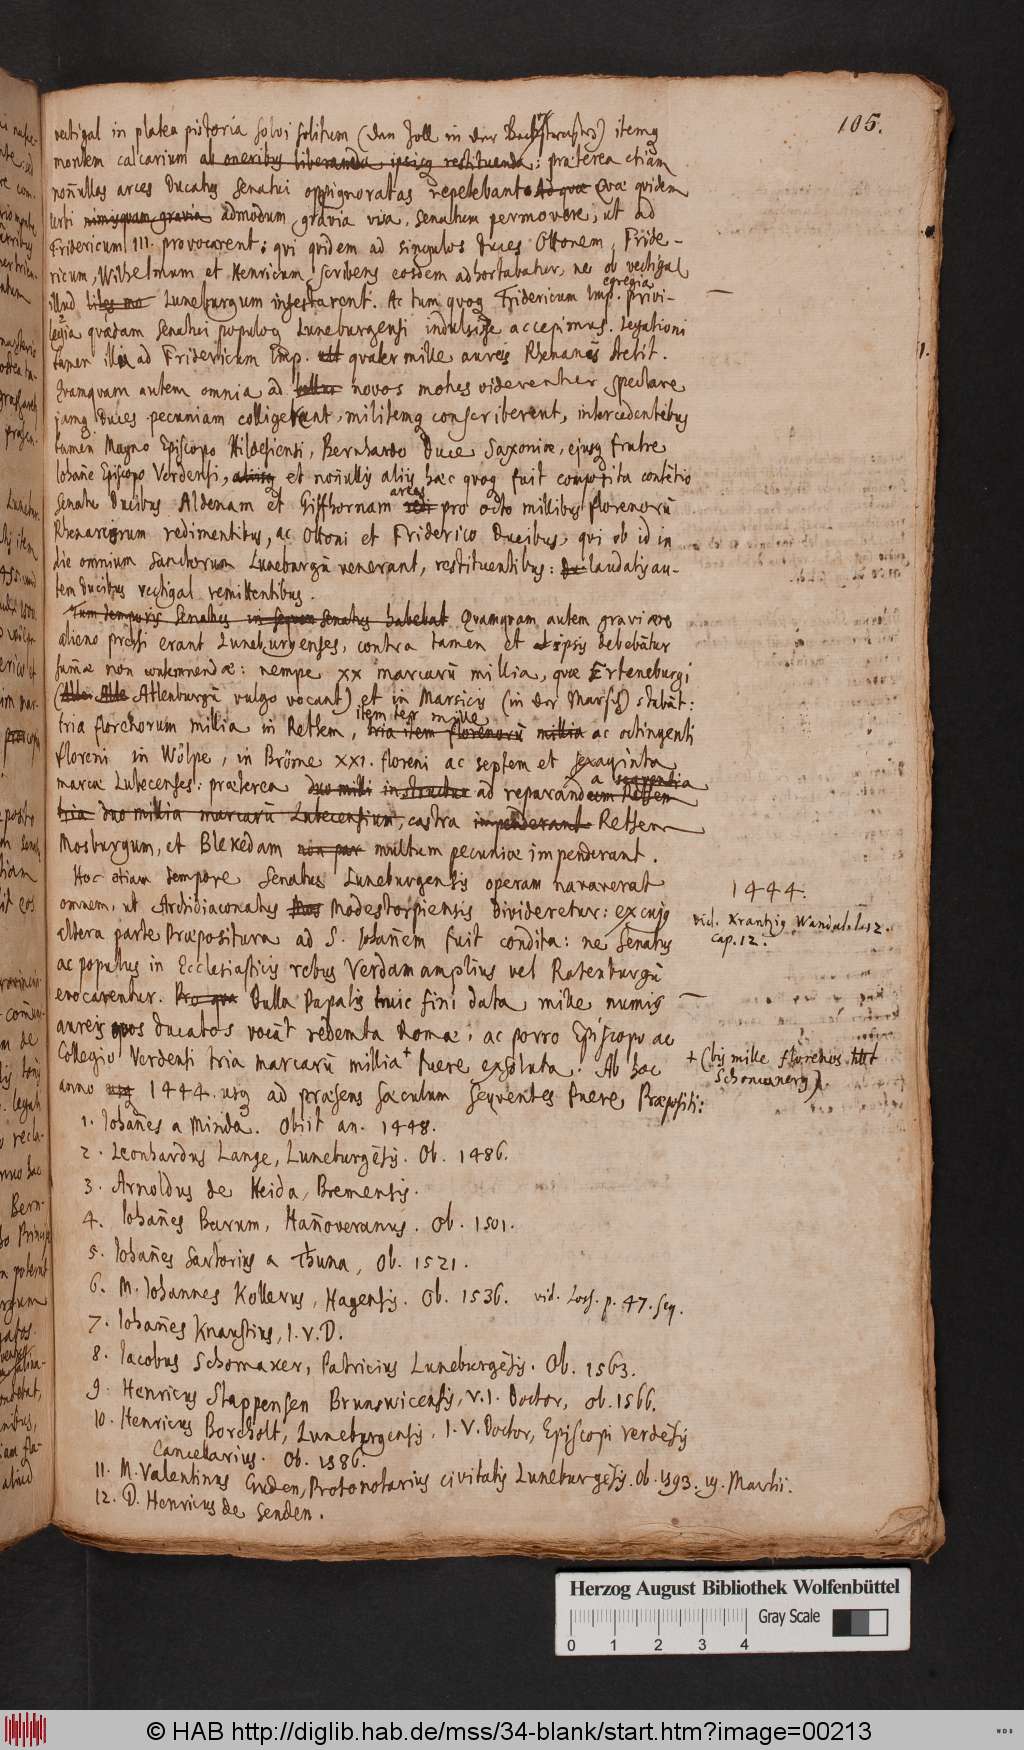 105.
vectigal in platea pistoria solvi solitum (den Zoll in der Backstrasse) itemq
montem calcarium ab oneribus liberanda ipsisq restituenda: præterea etiam
noñullas arces Ducatus Senatui oppignoratas repetebant Ad quæ Quæ quidem
urbi nimisquam gravia admodum gravia visa, Senatum permovere, ut ad
Fridericum III. provocarent: qui quidem ad singulos Duces Ottonem, Fride-
ricum, Wilhelmum et Henricum scribens eosdem adhortabatur, ne ob vectigal
illud Luneburgum infestarent. Ac tum quoq Fridericum Imp. egregia privi-
legia quædam Senatui populoq Luneburgensi indulsisse accepimus. Legationi
tamen illa ad Fridericum Imp. quater mille aureis Rhenanis stetit.
Quamquam autem omnia ad bellum novos motus viderentur spectare
jamq Duces pecuniam colligerent, militemq conscriberent, intercedentibus
tamen Magno Episcopo Hildesiensi, Bernhardo Duce Saxoniæ, ejusq fratre
Iohañe Episcopo Verdensi, aliisq et noñullis aliis hæc quoq fuit composita contentio
Senatu Ducibus Aldenam et Giffhornam arces pro octo millibus florenorũ
Rhenanorum redimentibus, ac Ottoni et Friderico Ducibus, qui ob id in
die omnium Sanctorum Luneburgũ venerant, restituentibus: laudatis au-
tem Ducibus vectigal remittentibus.
Tum temporis Senatus in Senatus habebat Quamquam autem gravi ære
alieno pressi erant Luneburgenses, contra tamen et ipsis debebãtur
sum̃æ non contemnendæ: nempe XX marcarũ millia, quæ Erteneburgi
(Atlenburgũ vulgo vocant) et in Marsicis (in der Marsch) stabãt:
tria florenorum millia in Rethem, item ter mille tria item florenorũ millia ac octingenti
floreni in Wölpe, in Bröme XXI. floreni ac septem et sexaginta
marcæ Lubecenses: præterea duo milli instructur ad reparanda sequentia Rethem
tria duo millia marcarũ Lubecensium, castra impenderant Rethem
Mosburgum, et Blekedam non par multum pecuniæ impenderant.
Hoc etiam tempore Senatus Luneburgensis operam navaverat
omnem, ut Archidiaconatus Mos Modestorpiensis divideretur: ex cujq
altera parte Præpositura ad S. Iohañem fuit condita: ne Senatus
ac populus in Ecclesiasticis rebus Verdam amplius vel Rotenburgũ
evocarentur. Pro qua Bulla Papalis huic fini data mille numis
aureis quos Ducatos vocãt redemta Romæ: ac porro Episcopo ac
Collegio Verdensi tria marcarũ millia + fuere exsoluta. Ab hoc
anno usq 1444. usq ad præsens sæculum sequentes fuere Præpositi:
1444.
vid. Krantziq Wandal. l. 12.
cap. 12.
+ (bis mille florenos tstt
Schomaxerg).
1. Iohañes a Minda. Obiit an. 1448.
2. Leonhardus Lange, Luneburgẽsis. Ob. 1486.
3. Arnoldus de Heida, Bremensis.
4. Iohañes Barum, Hañoveranus. Ob. 1501.
5. Iohañes Sartorius a Thuna, Ob. 1521.
6. M. Iohannes Kollerus, Hagensis. Ob. 1536. vid. Loss. p. 47. seq.
7. Iohañes Knaustius, I.V.D.
8. Iacobus Schomaker, Patricius Luneburgẽsis. Ob. 1563.
9. Henricus Stappensen Brunswicensis, V.I. Doctor, ob. 1566.
10. Henricus Borcholt, Luneburgensis, I.V. Doctor, Episcopi Verdẽsis
Cancelarius. Ob. 1586.
11. M. Valentinus Cruden, Protonotarius civitatis Luneburgẽsis. Ob. 1593. 19. Martii.
12. D. Henricus de Senden.
Herzog August Bibliothek Wolfenbüttel
Gray Scale
0 1 2 3 4
© HAB http://diglib.hab.de/mss/34-blank/start.htm?image=00213